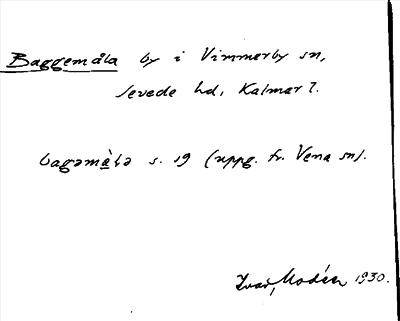 Baggemåla by i Vimmerby sn,
Sevede hd, Kalmar l.
bagəmàla s. 19 (uppg. fr. Vena sn).
Ivar Modéer 1930.